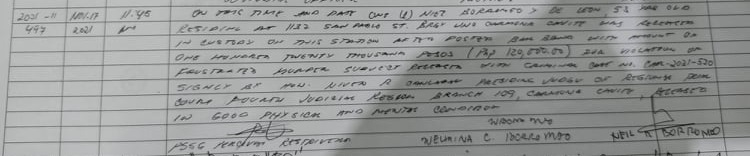 2021-11 NOV.17 11:45 ON THIS TIME AND DATE ONE (1) NEIL BORROMEO Y DE LEON, 53 YRS OLD
497 2021 AM RESIDING AT 1132 SAN PABLO ST. BRGY UNO CARMONA CAVITE WAS RELEASED
IN CUSTODY ON THIS STATION AFTER POSTED BAIL BOND WITH AMOUNT OF
ONE HUNDRED TWENTY THOUSAND PESOS (Php 120,000.00) FOR VIOLATION OF
FRUSTRATED MURDER SUBJECT RELEASED WITH CRIMINAL CASE NO. CAR-2021-520
SIGNED BY HON. JUDGE OF REGIONAL TRIAL
COURT FOURTH JUDICIAL REGION BRANCH 109, CARMONA CAVITE, RELEASED
IN GOOD PHYSICAL AND MENTAL CONDITION
PSSG NEIL BORROMEO